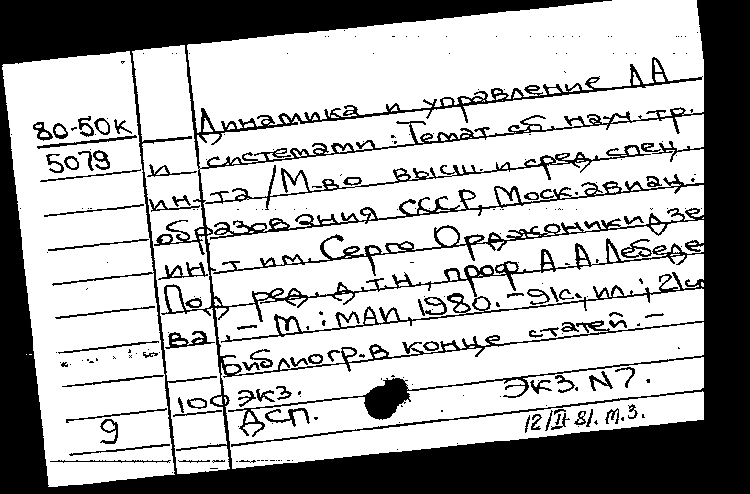 80-50К
5079
Динамика и управление ЛА
и системами: Темат. сб. науч. тр.
ин-та / М-во высш. и сред. спец.
образования СССР, Моск. авиац.
ин-т им. Серго Орджоникидзе
Под ред. д.т.н., проф. А.А. Лебеде-
ва. - М.: МАИ, 1980. - 91с., ил.; 21см
Библиогр. в конце статей. -
100 экз. экз. N 7.
ДСП.
9
12/II-81. м.з.